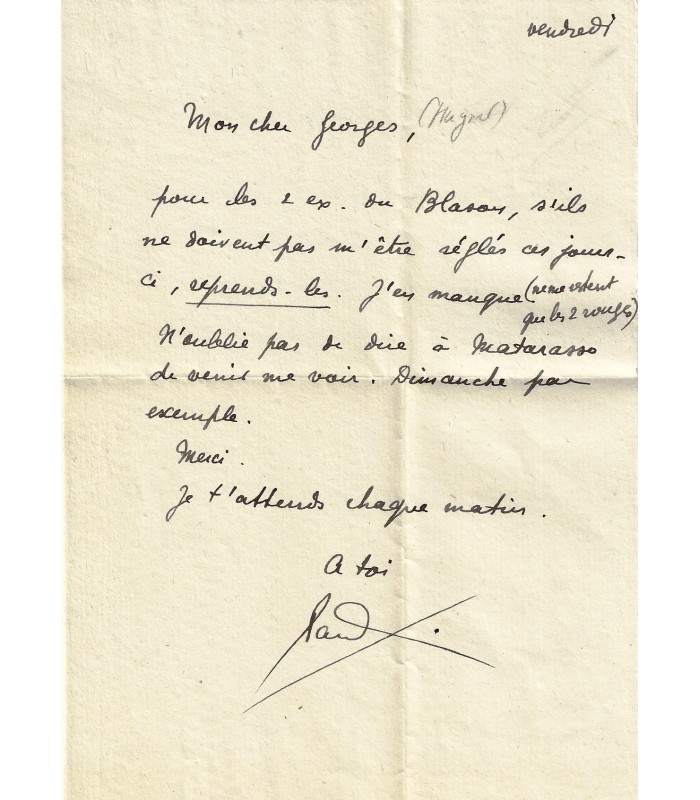 vendredi
Mon cher Georges, (Hugnet)
pour les 2 ex. du Blason, s'ils
ne doivent pas m'être réglés ces jours-
ci, reprends-les. J'en manque (ne me restent
que les 2 rouges)
N'oublie pas de dire à Matarasso
de venir me voir. Dimanche par
exemple.
Merci.
Je t'attends chaque matin.
A toi
Paul